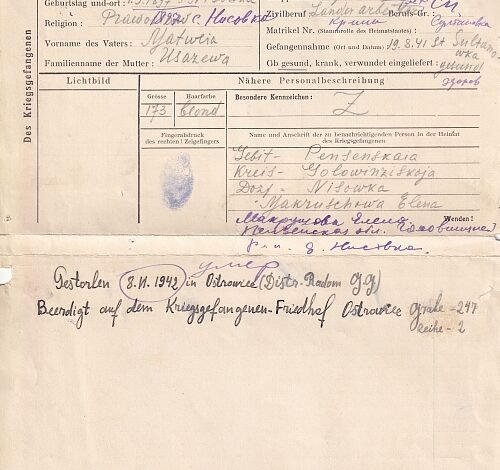 Geburtstag und -ort:
Religion : Prawosl. Носовка
Zivilberuf : Landarbeiter Berufs-Gr. :
Matrikel Nr. (Stammrolle des Heimatstaates) :
Vorname des Vaters : Matweia
Gefangennahme (Ort und Datum) : 19.8.41 St Sultano
Familienname der Mutter : Usazewa
Ob gesund, krank, verwundet eingeliefert : gesund
здоров
Des Kriegsgefangenen
Lichtbild
Nähere Personalbeschreibung
Grösse
Haarfarbe
Besondere Kennzeichen :
173
blond
Z
Fingerabdruck
des rechten ! Zeigefingers
Name und Anschrift der zu benachrichtigenden Person in der Heimat
des Kriegsgefangenen
Gebit - Pensenskaia
Kreis - Golowinziskoja
Dorf - Nisowka
Makruschowa Elena
Макрушова Елена
Wenden !
Пензенская обл.
д. Нисовка.
умер
Gestorben 8.VI.1942 in Ostrowiec (Distr. Radom G.G)
Beerdigt auf dem Kriegsgefangenen-Friedhof Ostrowiec Grabe - 247
Reihe - 2